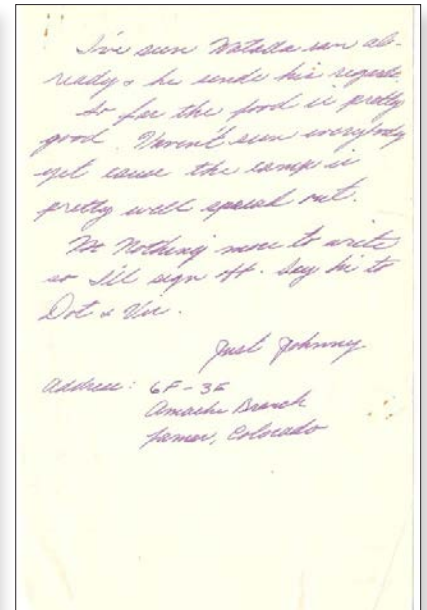 I've seen Watada san al-
ready & he sends his regards.
So far the food is pretty
good. Haven't seen everybody
yet cause the camp is
pretty well spread out.
Nothing more to write
so I'll sign off. Say hi to
Dot & Vic.
Just Johnny
Address: 6F-3E
Amache Branch
Lamar, Colorado